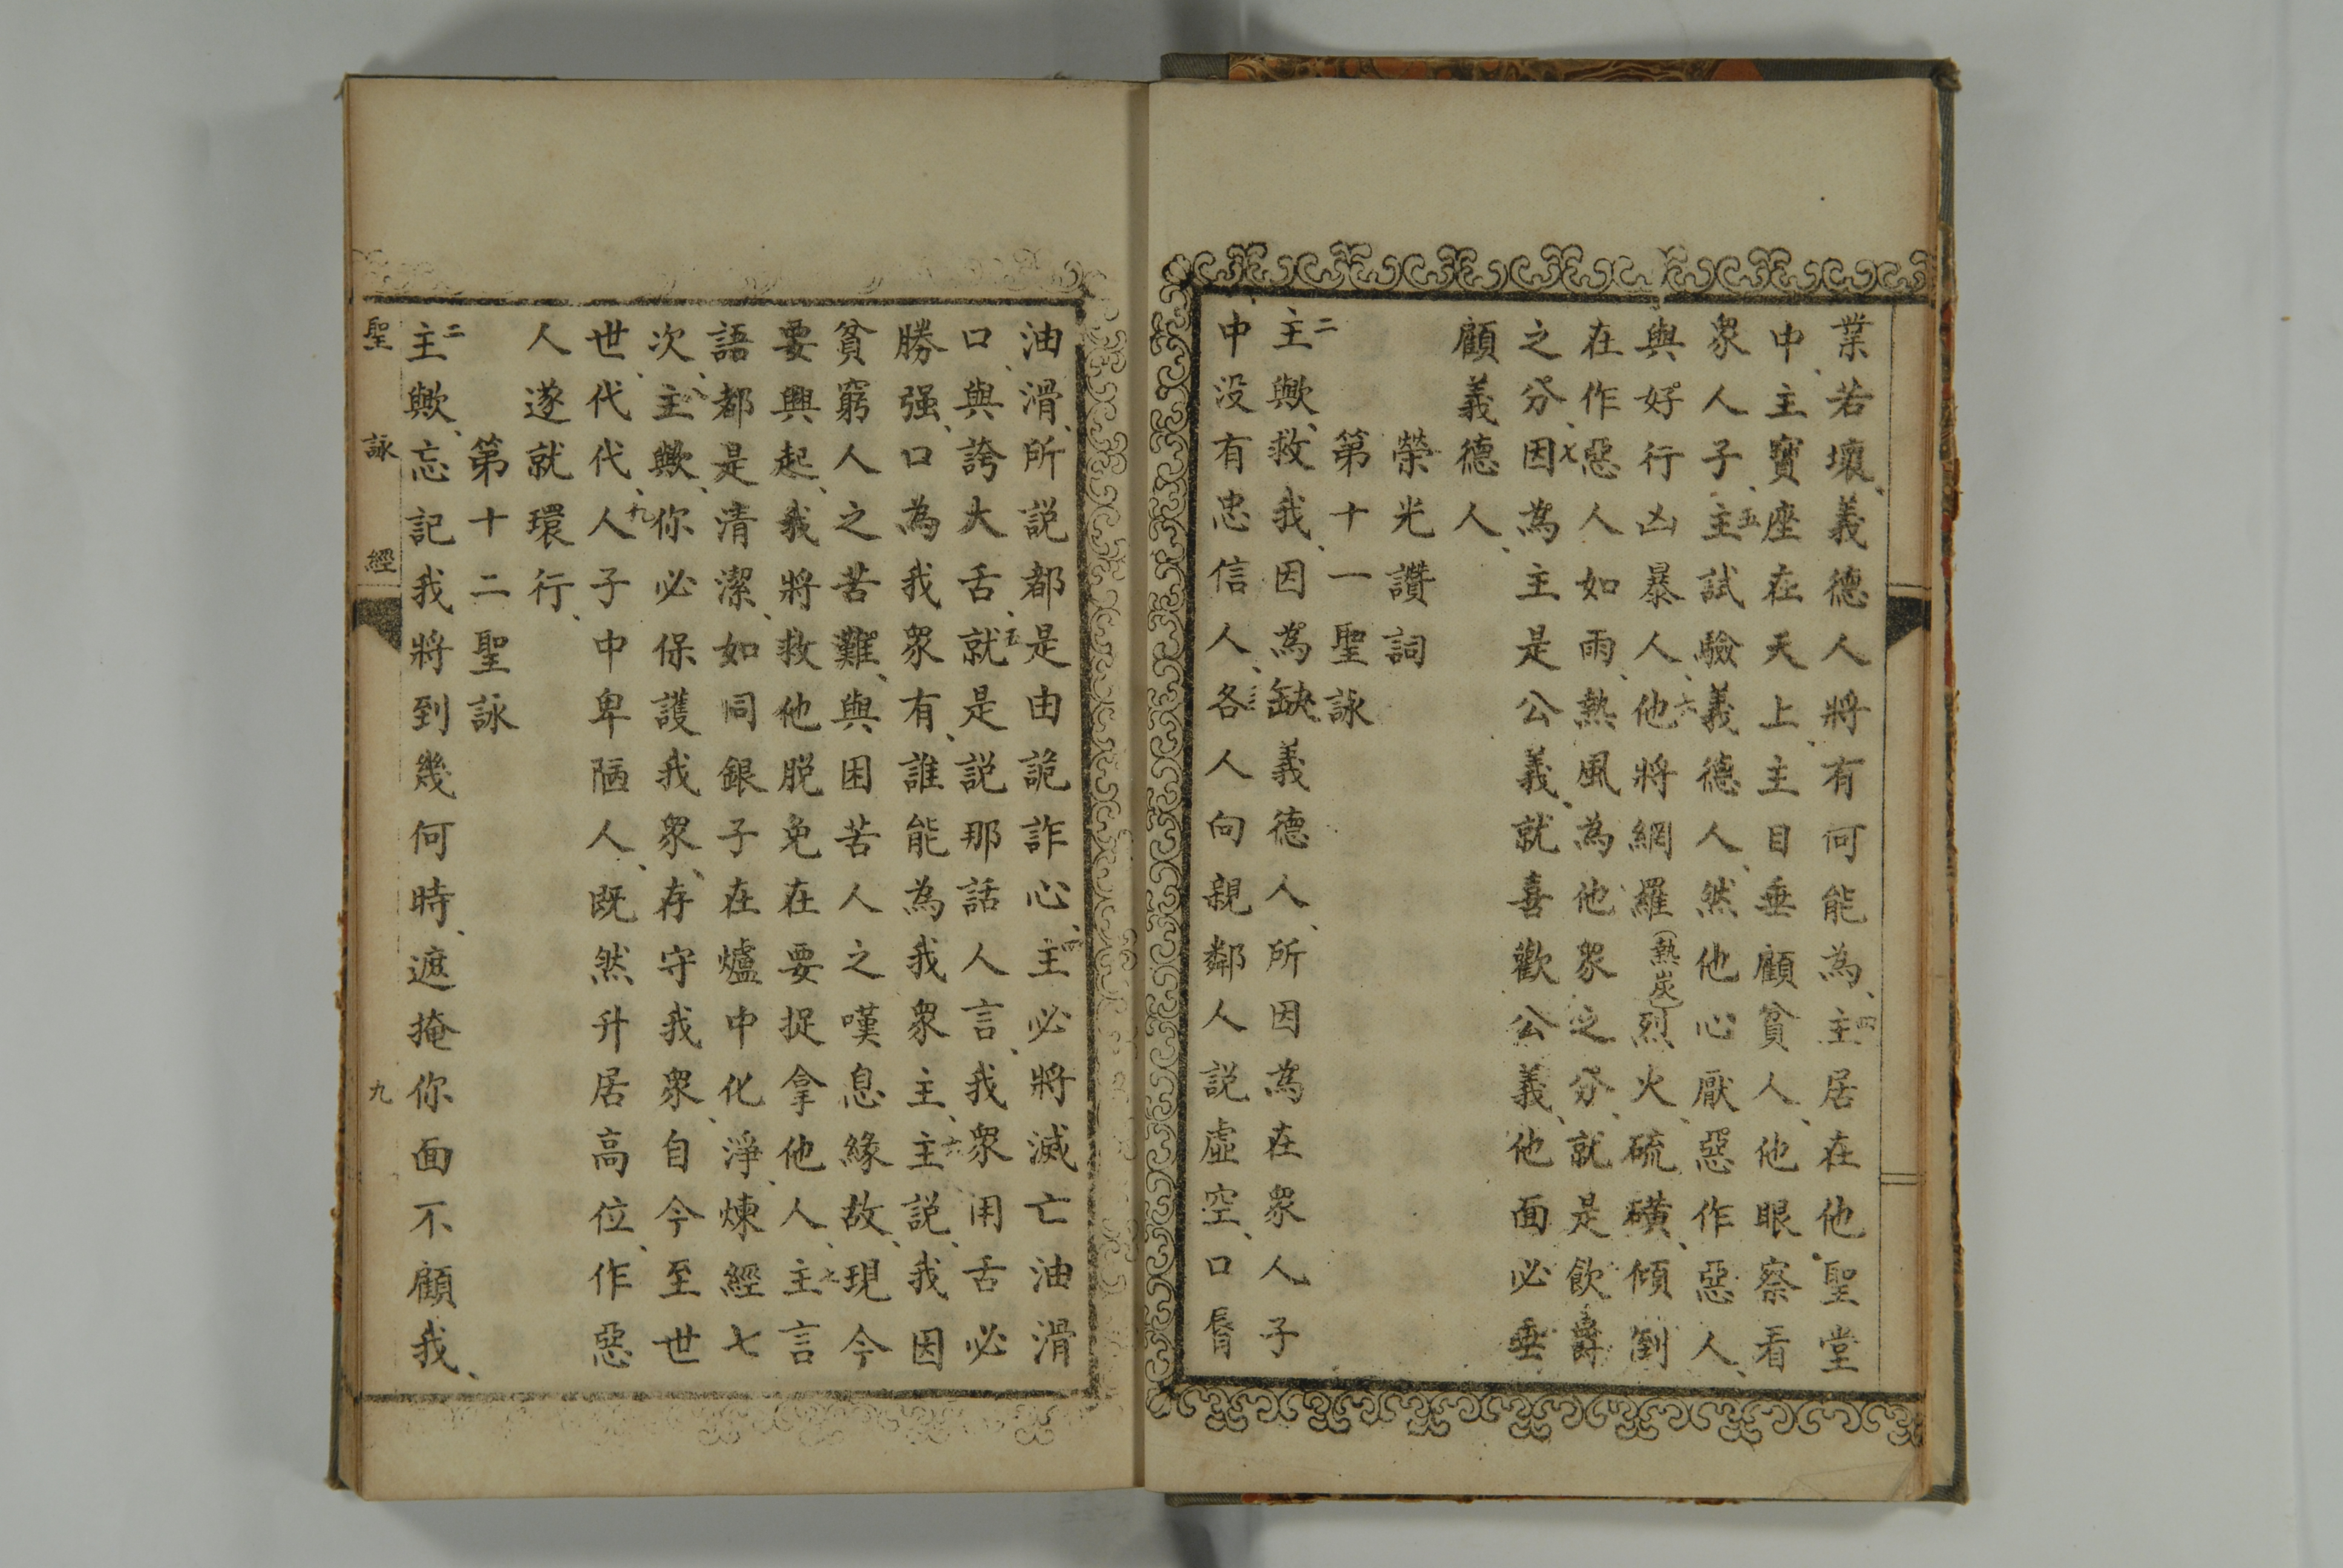 業若壞、義德人將有何能為、四主居在他聖堂
中、主寶座在天上、主目垂顧貧人、他眼察看
衆人子、五主試驗義德人、然他心厭惡作惡人、
與好行凶暴人、六他將網羅(熱炭)烈火、硫磺、傾倒
在作惡人如雨、熱風為他衆之分、就是飲爵
之分、七因為主是公義、就喜歡公義、他面必垂
顧義德人、
榮光讚詞
第十一聖詠
二主歟、救我、因為缺義德人、所因為在衆人子
中、没有忠信人、三各人向親鄰人說虛空、口脣
油滑、所説都是由詭詐心、四主必將滅亡油滑
口、與誇大舌、五就是説那話人言、我衆用舌必
勝强、口為我衆有、誰能為我衆主、六主説、我因
貧窮人之苦難、與困苦人之嘆息緣故、現今
要興起、我將救他脱免在要捉拿他人、七主言
語都是清潔、如同銀子在爐中化淨、煉經七
次、八主歟、你必保護我衆、存守我衆、自今至世
世代代、九人子中卑陋人、既然升居高位、作惡
人遂就環行、
第十二聖詠
二主歟、忘記我將到幾何時、遮掩你面不顧我、
聖詠經 九